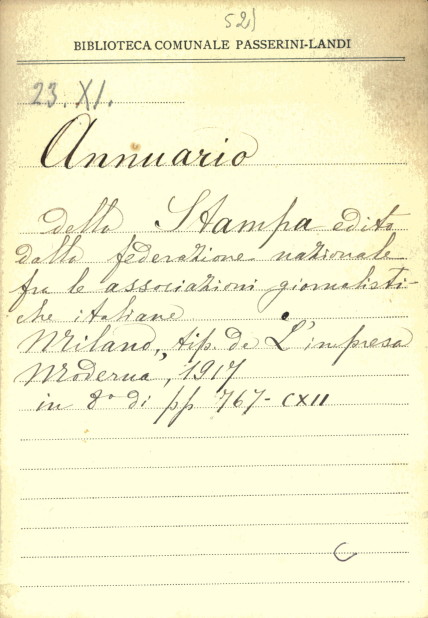 52)
BIBLIOTECA COMUNALE PASSERINI-LANDI
23. XI.
Annuario
della Stampa edito
dalla federazione nazionale
fra le associazioni giornalisti-
che italiane
Milano, tip. de L'impresa
Moderna", 1917
in 8° di pp 767-CXII
C